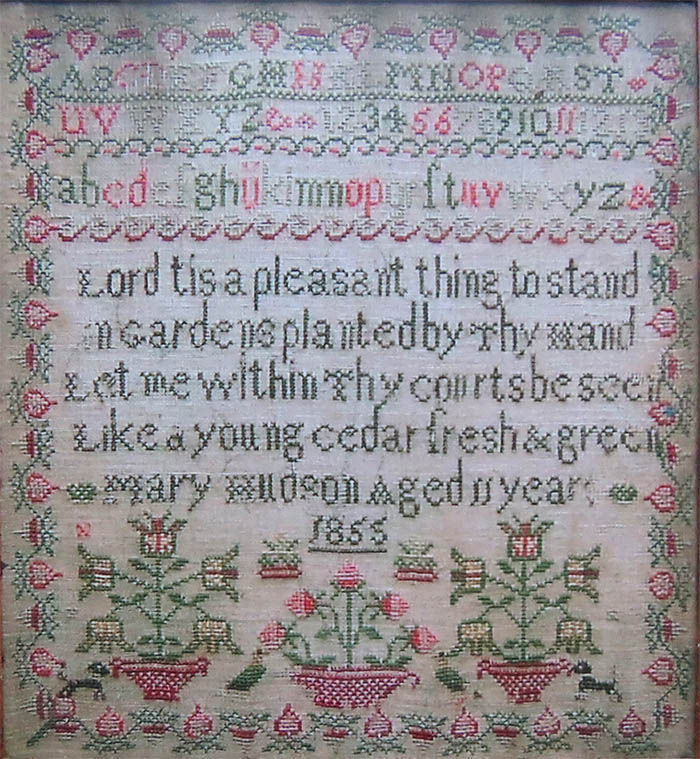 ABC GHH MNOP ST
UV YZ & 123456 91011
abcd ghij mnop stuv w yz &
Lord tis a pleasant thing to stand
in Gardens planted by Thy Hand
Let me within Thy courts be seen
Like a young cedar fresh & green
Mary Hudson Aged 11 years
1855